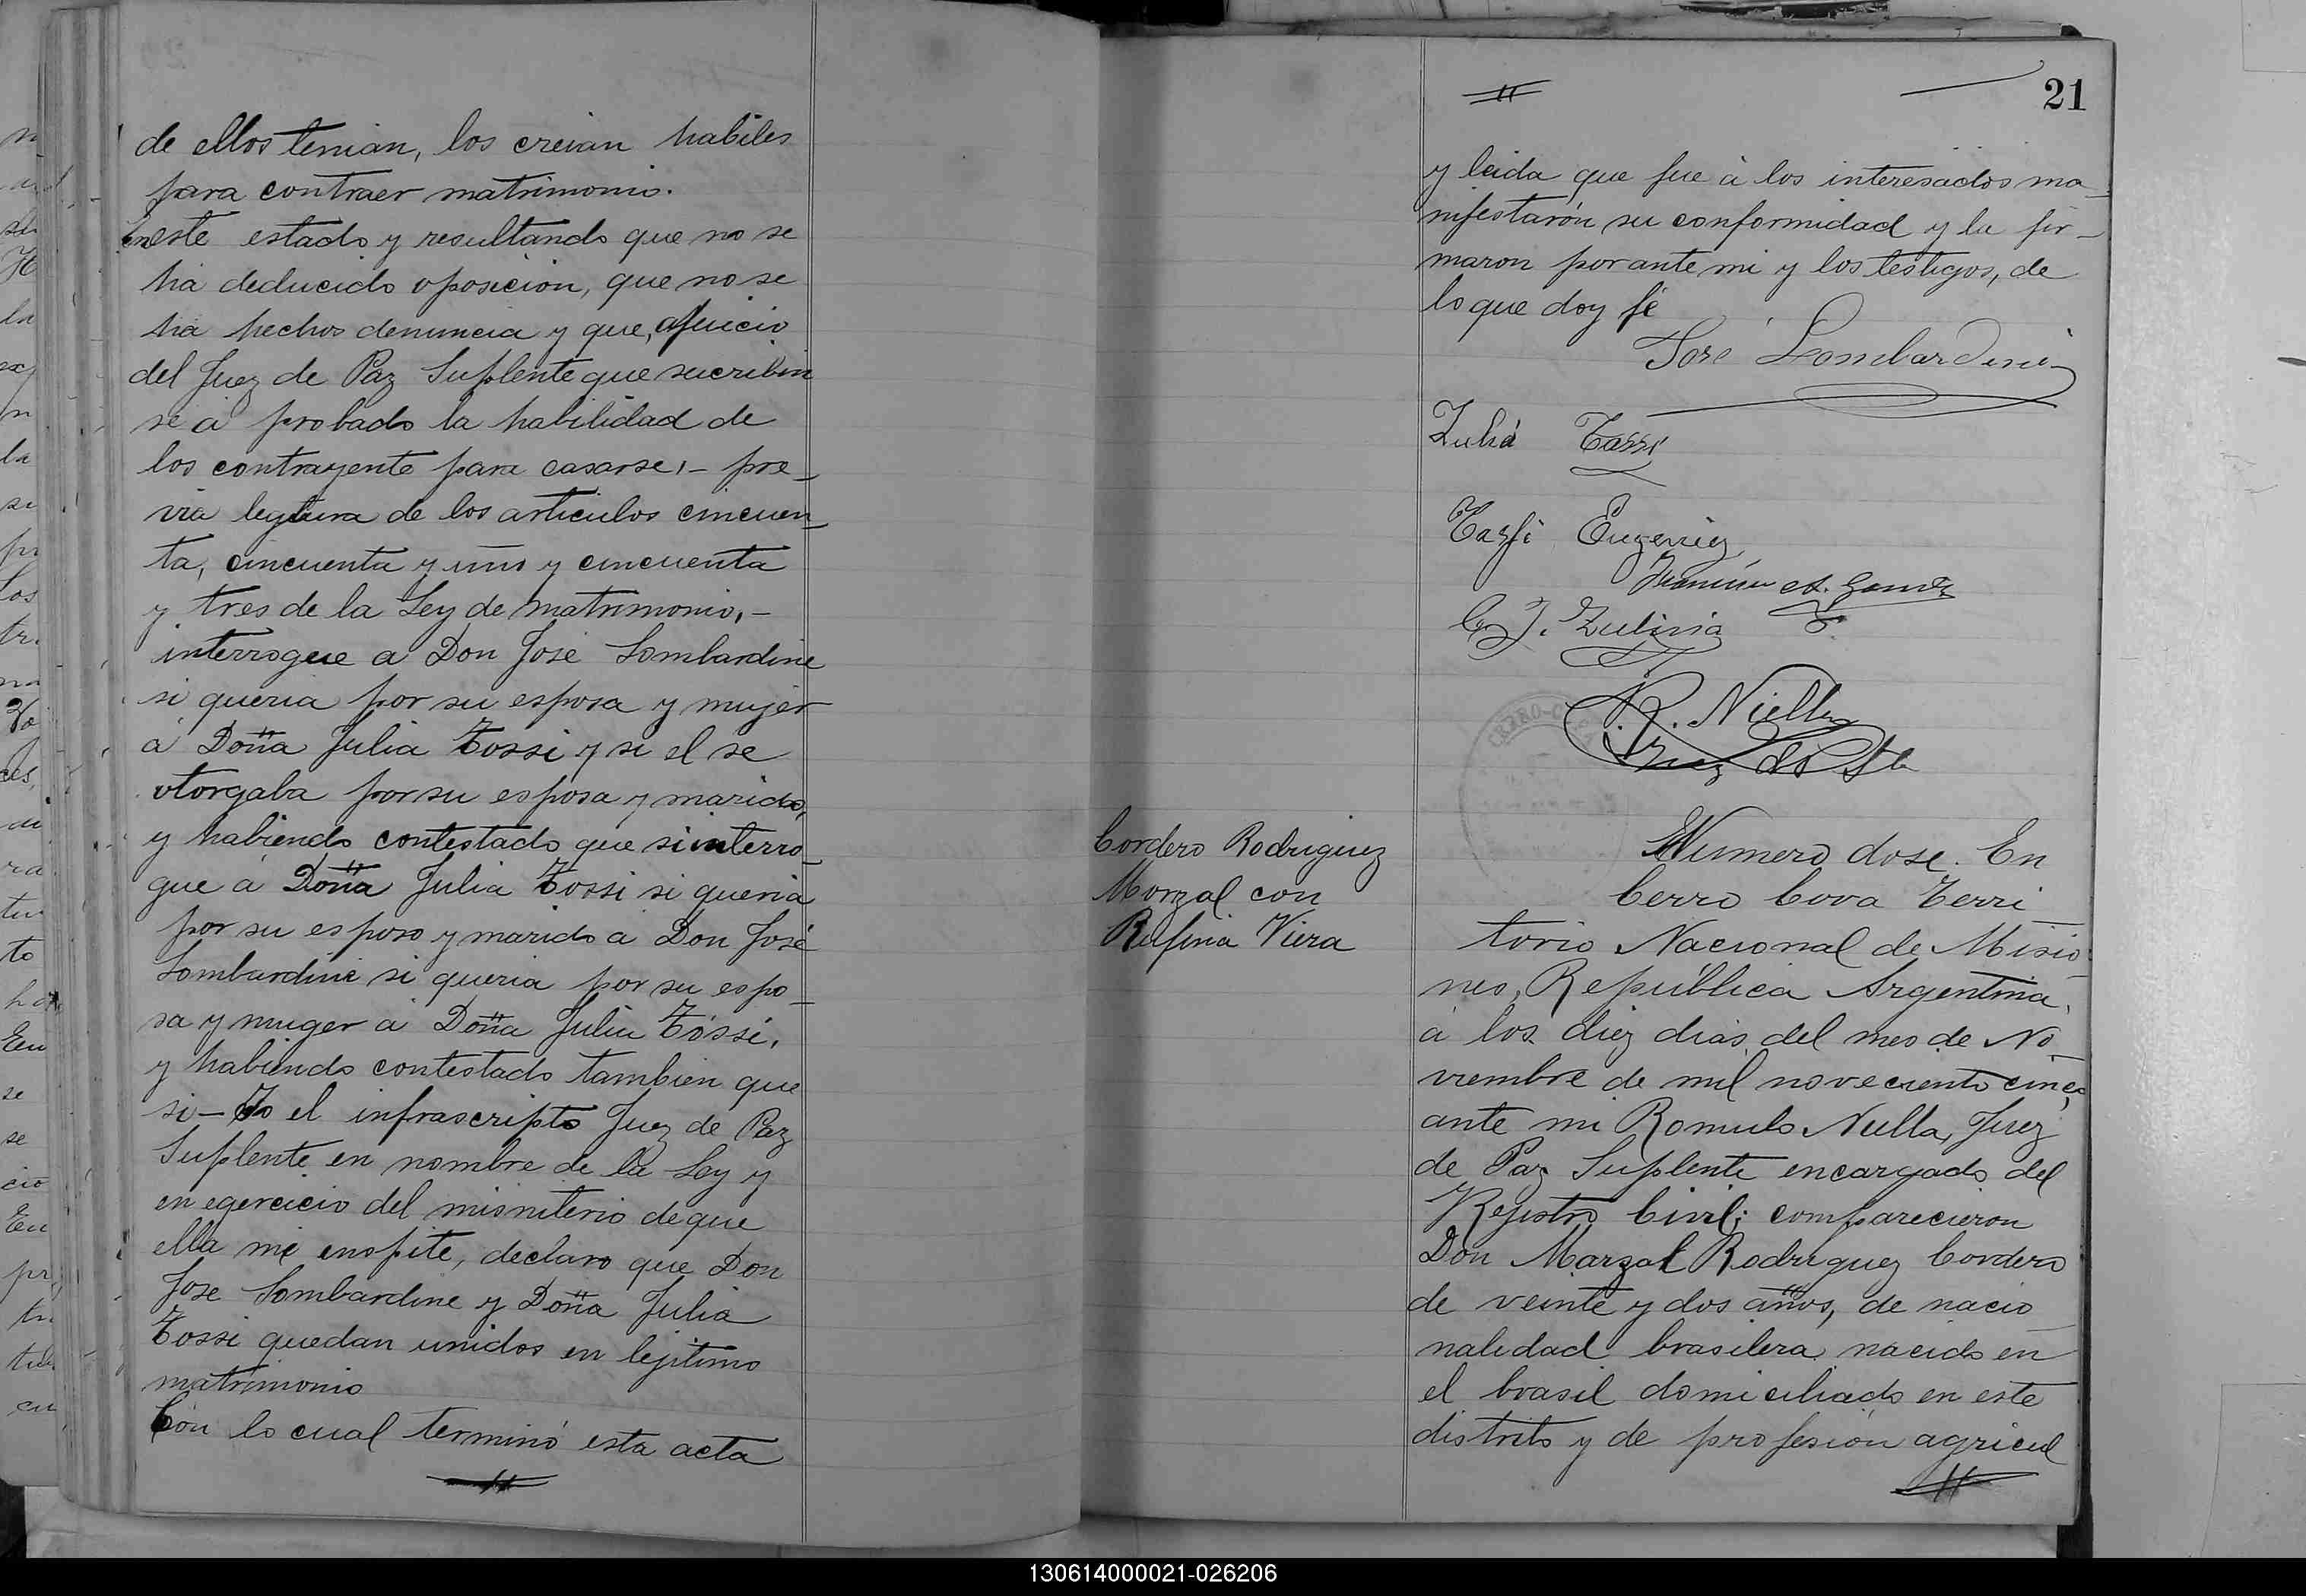 de ellos tenian, los creian habiles
para contraer matrimonio.
En este estado y resultando que no se
ha deducido oposicion, que no se
ha hechos denuncia y que, ajuicio
del Juez de Paz Suplente que sucribin
se á probado la habilidad de
los contrayente para casarse, - pre-
via legtura de los articulos cincuen-
ta, cincuenta y uno y cincuenta
y tres de la Ley de matrimonio, -
interrogue a Don José Lombardine
si queria por su esposa y mujer
á Doña Julia Tossi y si el se
otorgaba por su esposa y marido,
y habiendo contestado que si interro-
gue á Doña Julia Tossi si queria
por su esposo y marido á Don José
Lombardine si queria por su espo-
sa y muger á Doña Julia Tossi,
y habiendo contestado tambien que
si - Yo el infrascripto Juez de Paz
Suplente en nombre de la Ley y
en egercicio del misniterio de que
ella me enspite, declaro que Don
Jose Lombardine y Doña Julia
Tossi quedan unidos en lejitimo
matrimonio
Con lo cual terminó esta acta
21
y leida que fue á los interesados ma-
nifestarón su conformidad y la fir-
maron por ante mi y los testigos, de
lo que doy fé
José Lombardini
Julia Tassi
Tassi Eugenio
A. Gomez
J. Zubiria
R. Niella
Juez de
Cordero Rodriguez
Morzal con
Rufina Viera
Numero dose. En
Cerro Cora Terri
torio Nacional de Misio-
nes, República Argentina,
á los diez dias del mes de No-
viembre de mil noveciento cinco
ante mi Romulo Niella, Juez
de Paz Suplente encargado del
Registro Civil; comparecieron
Don Marzal Rodriguez Cordero
de veinte y dos años, de nacio
nalidad brasilera nacido en
el brasil domiciliado en este
distrito y de profesión agricul
130614000021-026206